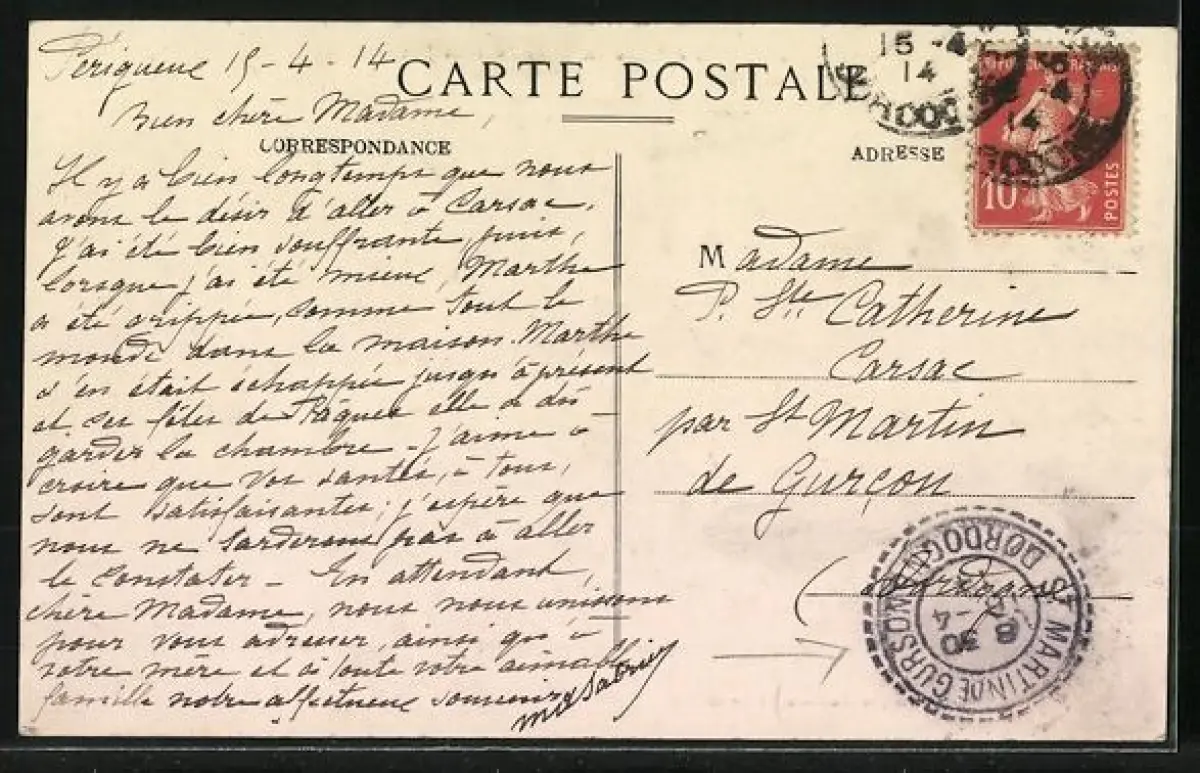 Périgueux 15-4-14
CARTE POSTALE
Bien chère Madame,
CORRESPONDANCE
Il y a bien longtemps que nous
avons le désir d'aller à Carsac.
J'ai été bien souffrante, puis,
lorsque j'ai été mieux, Marthe
a été grippée, comme tout le
monde dans la maison. Marthe
s'en était échappée jusqu'à présent
et ses fêtes de Pâques elle a dû
garder la chambre - J'aime à
croire que vos santés, à tous,
sont satisfaisantes; j'espère que
nous ne tarderons pas à aller
le constater - En attendant,
chère Madame, nous nous unissons
pour vous adresser, ainsi qu'à
votre mère et à toute votre aimable
famille notre affectueux souvenir
15 -4
14
DORDOGNE
15 -4
14
DORDOGNE
10
POSTES
ADRESSE
Madame
P. Ste Catherine
Carsac
par St Martin
de Gurçon
(Dordogne
ST MARTIN DE GURSON
DORDOGNE
8 30
-4